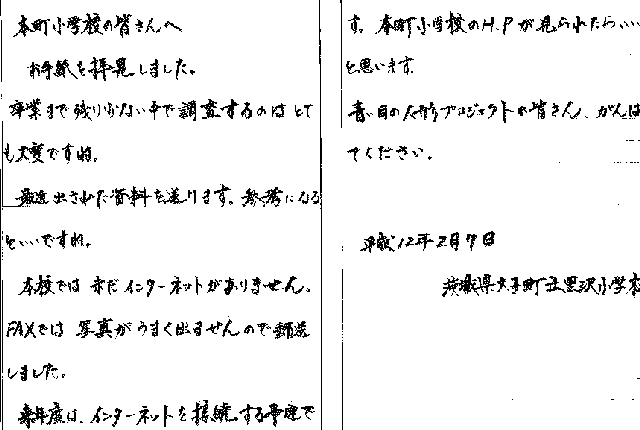 本町小学校の皆さんへ
お手紙を拝見しました。
卒業まで残り少ない中で調査するのはとて
も大変ですね。
最近出された資料を送ります。参考になる
といいですね。
本校では未だインターネットがありません。
FAXでは写真がうまく出ませんので郵送
しました。
来年度は、インターネットを接続する予定で
す。本町小学校のH.Pが見られたらいい
と思います。
青い目の人形プロジェクトの皆さん、がんば
てください。
平成12年2月7日
茨城県大子町立黒沢小学校